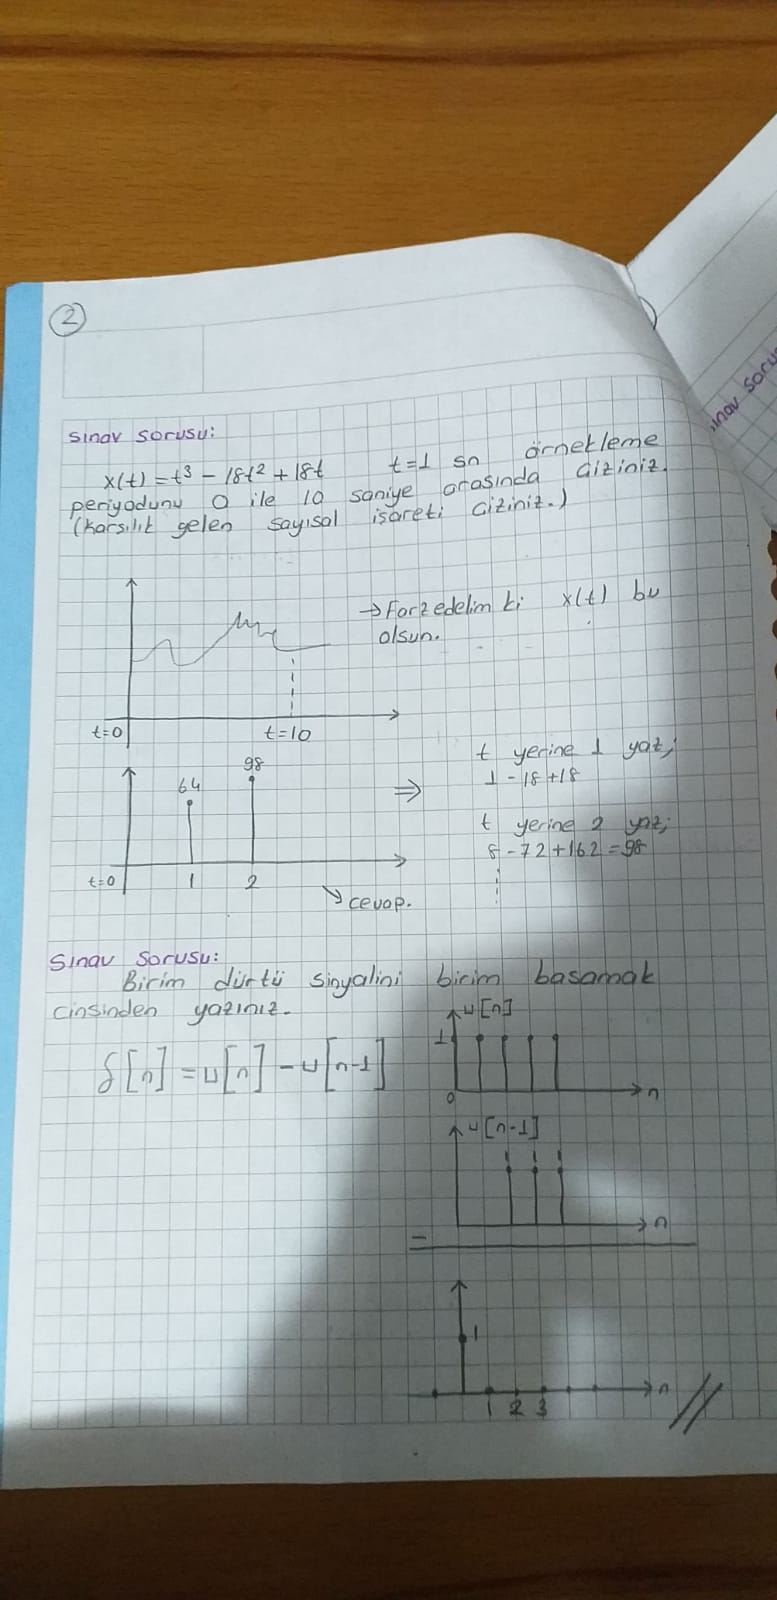 2
Sınav sorusu:
x(t) = t³ - 18t² + 18t t=1 sn örnekleme
periyodunu 0 ile 10 saniye arasında çiziniz.
(Karşılık gelen sayısal işareti çiziniz.)
→ Farzedelim ki x(t) bu
olsun.
t=0 t=10
t yerine 1 yaz;
1 - 18 + 18
t yerine 2 yaz;
8 - 72 + 162 = 98
64 98
⇒
t=0 1 2
cevap.
Sınav sorusu:
Birim dürtü sinyalini birim basamak
cinsinden yazınız.
δ[n] = u[n] - u[n-1]
u[n]
1
0 n
u[n-1]
n
-
1
1 2 3 n
ınav soru